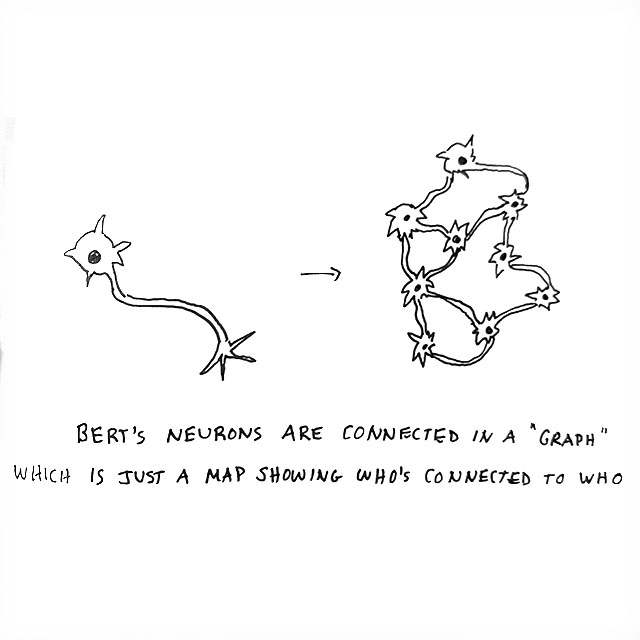 BERT'S NEURONS ARE CONNECTED IN A "GRAPH"
WHICH IS JUST A MAP SHOWING WHO'S CONNECTED TO WHO